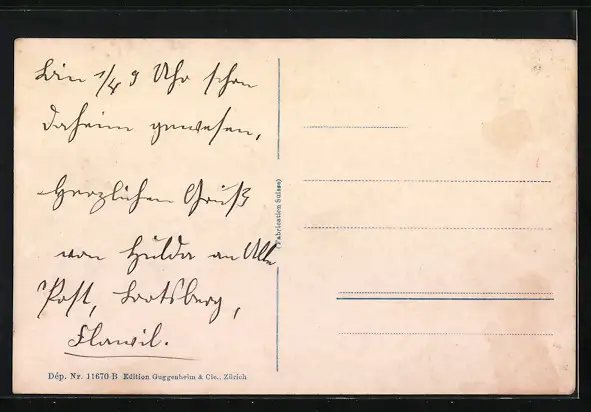 Bin 1/4 9 Uhr schon
daheim gewesen,
Herzlichen Gruß
von Hulda an Alle
Post, Lootsberg,
Flawil.
(Fabrication Suisse)
Dép. Nr. 11670 B Edition Guggenheim & Cie., Zürich